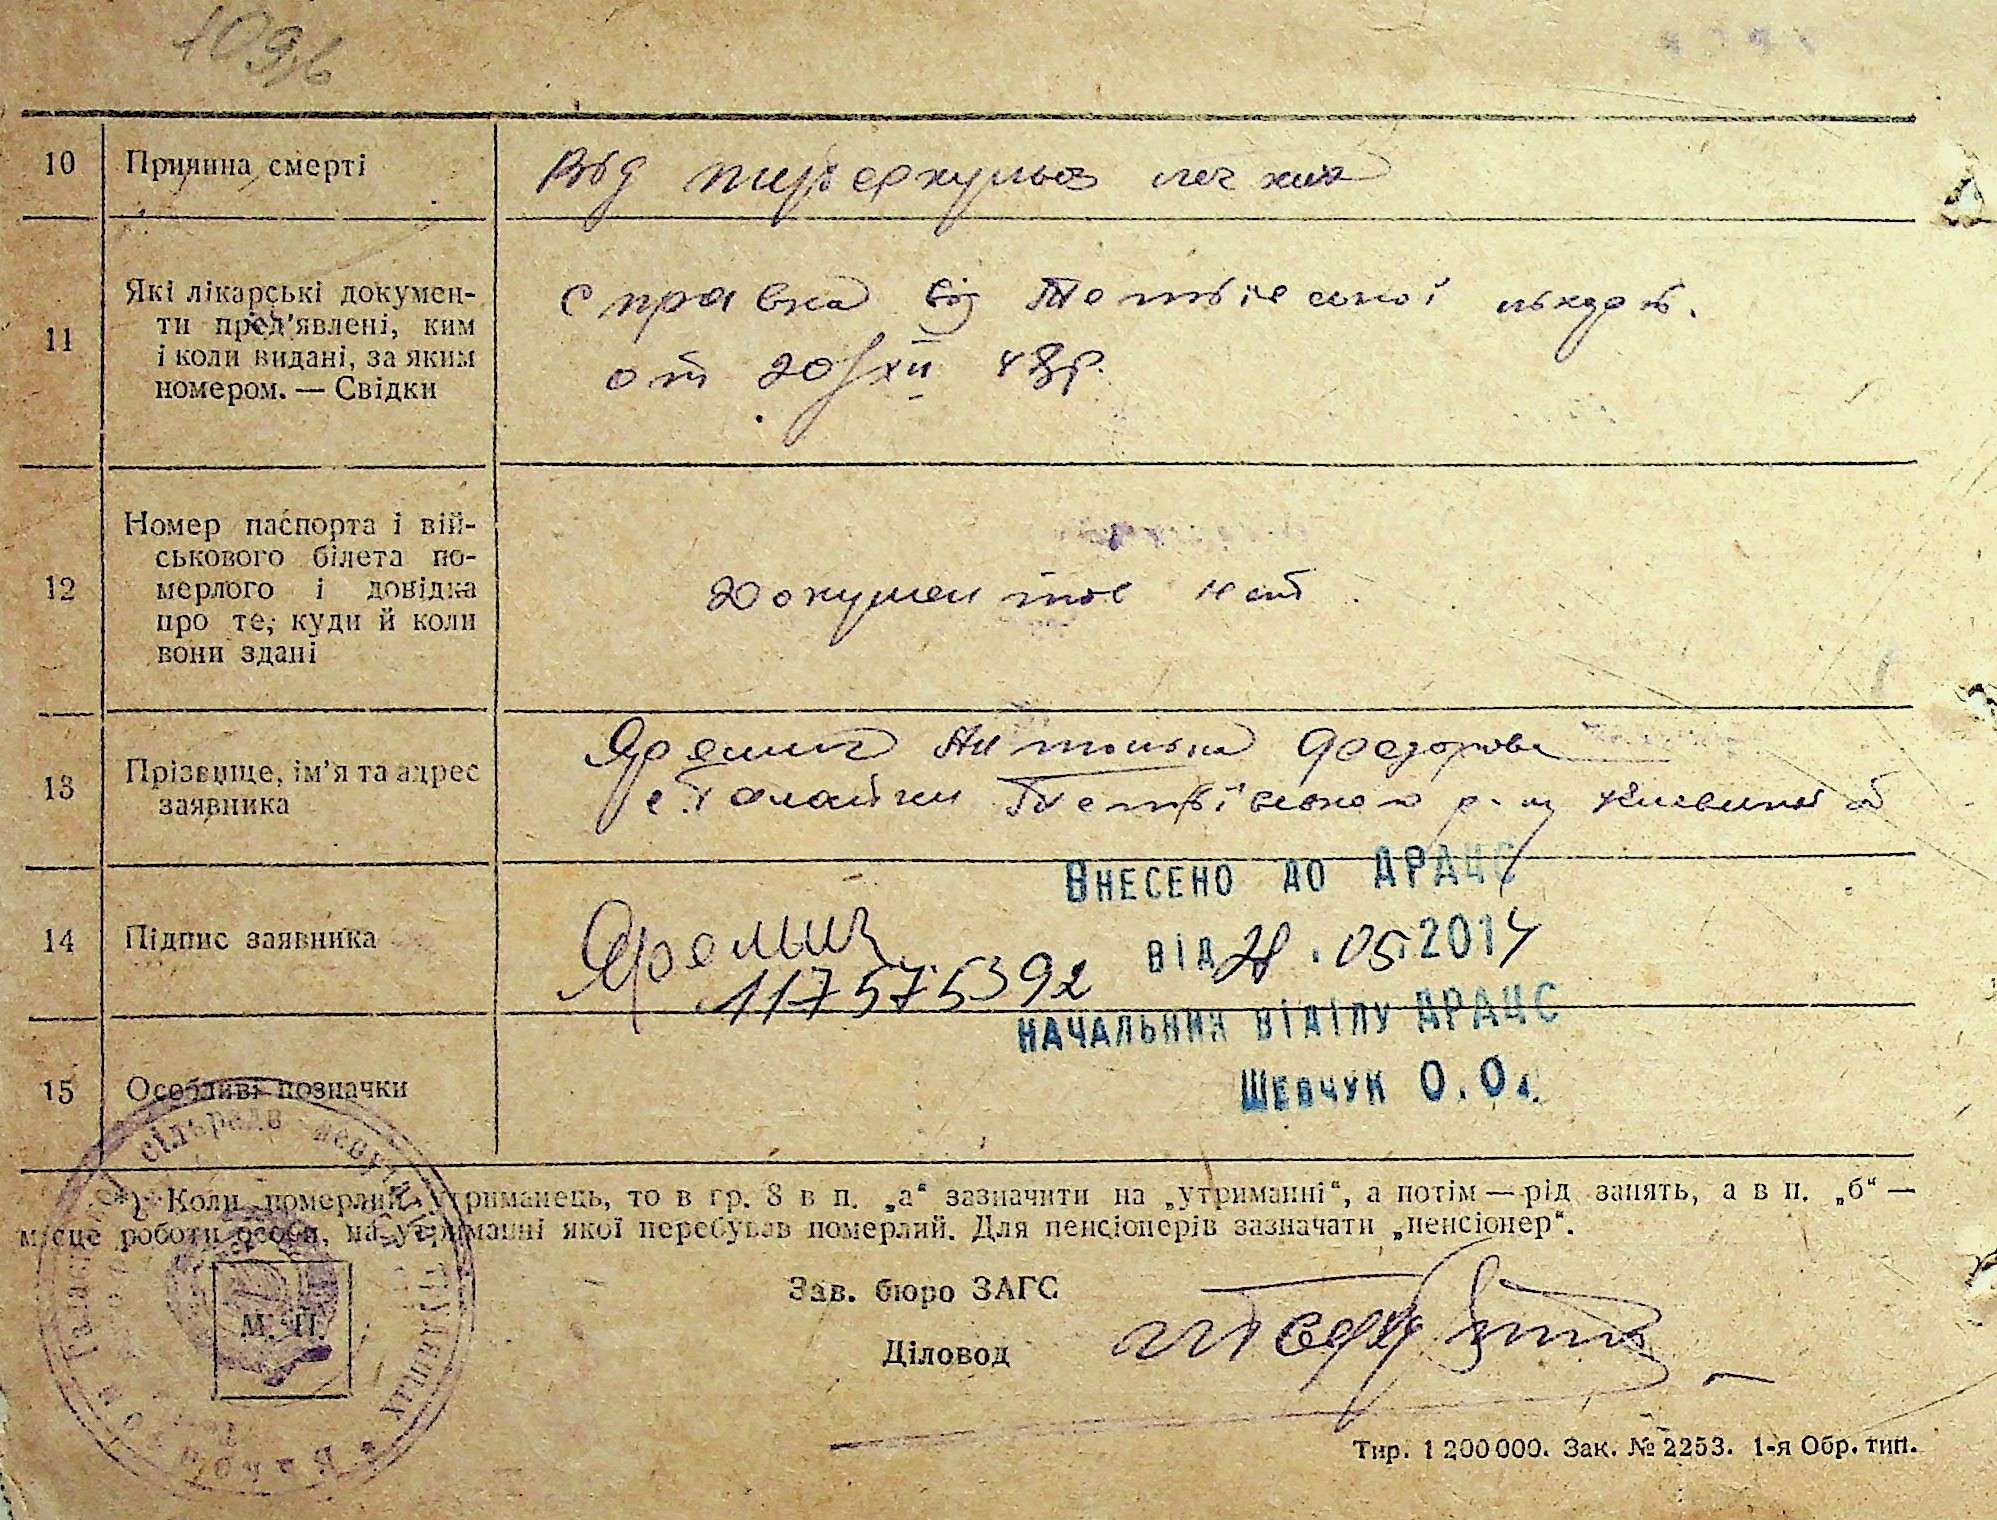 109
10 Причина смерті Від туберкульоз легких
11 Які лікарські докумен-
ти пред'явлені, ким
і коли видані, за яким
номером. — Свідки
Справка від Тетіївської
от 20/XII 48р.
12 Номер паспорта і вій-
ськового білета по-
мерлого і довідка
про те, куди й коли
вони здані
Документов нет.
13 Прізвище, ім'я та адрес
заявника
Яремич Антоніна Федорова
с. Галайки Тетіївського р-ну Киевской об
14 Підпис заявника Яремич
117575392
Внесено до ДРАЦС
від 28.05.2014
начальник відділу ДРАЦС
Шевчук О.О.
15 Особливі позначки
*) Коли померлий утриманець, то в гр. 8 в п. „а“ зазначити на „утриманні“, а потім — рід занять, а в п. „б“ —
місце роботи особи, на утриманні якої перебував померлий. Для пенсіонерів зазначати „пенсіонер“.
Зав. бюро ЗАГС
Діловод
М. П.
сільрада
Тир. 1 200 000. Зак. № 2253. 1-я Обр. тип.